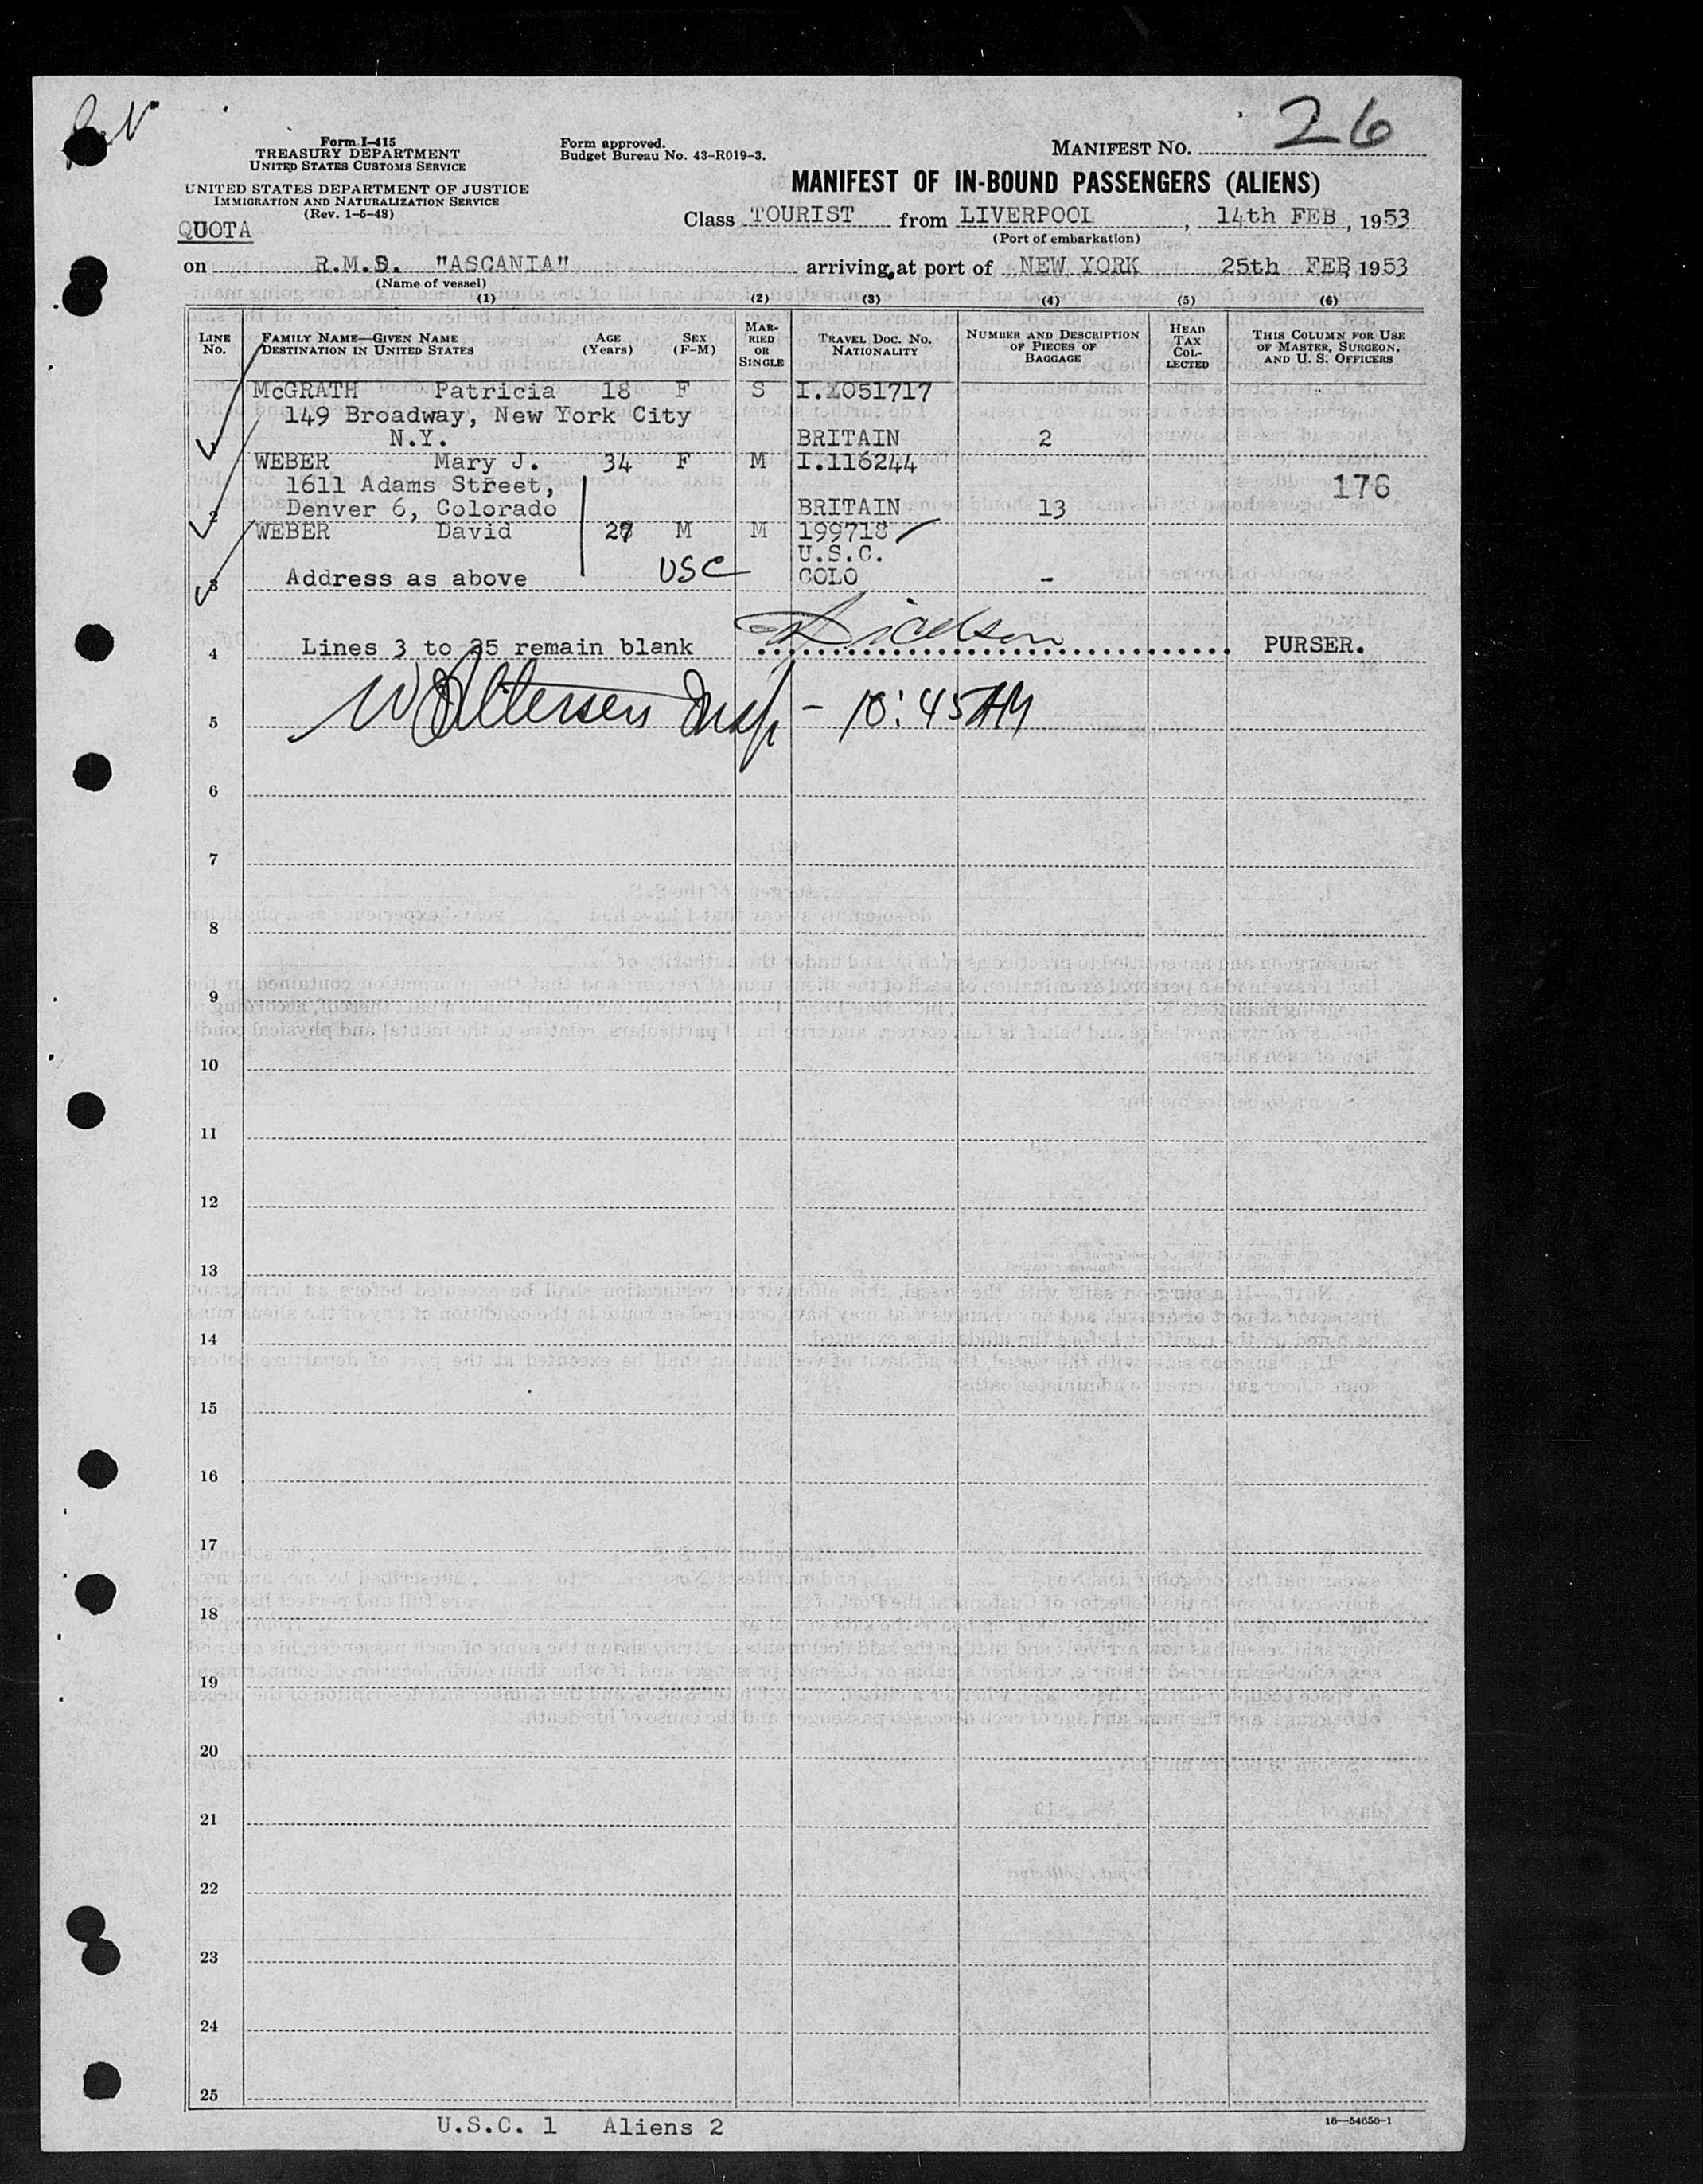 26
Form I-415
TREASURY DEPARTMENT
UNITED STATES CUSTOMS SERVICE
UNITED STATES DEPARTMENT OF JUSTICE
IMMIGRATION AND NATURALIZATION SERVICE
(Rev. 1-5-48)
Form approved.
Budget Bureau No. 43-R019-3.
MANIFEST NO.
MANIFEST OF IN-BOUND PASSENGERS (ALIENS)
QUOTA
Class TOURIST from LIVERPOOL, 14th FEB, 1953
(Port of embarkation)
on R.M.S. "ASCANIA" arriving at port of NEW YORK 25th FEB, 1953
(Name of vessel)
(1) (2) (3) (4) (5) (6)
LINE NO. FAMILY NAME—GIVEN NAME DESTINATION IN UNITED STATES AGE (Years) SEX (F-M) MARRIED OR SINGLE TRAVEL DOC. NO. NATIONALITY NUMBER AND DESCRIPTION OF PIECES OF BAGGAGE HEAD TAX COLLECTED THIS COLUMN FOR USE OF MASTER, SURGEON, AND U. S. OFFICERS
McGRATH Patricia 18 F S I.1051717
149 Broadway, New York City
N.Y. BRITAIN 2
WEBER Mary J. 34 F M I.116244
1611 Adams Street, 176
2 Denver 6, Colorado BRITAIN 13
WEBER David 27 M M 199718
U.S.C.
3 Address as above USC COLO -
4 Lines 3 to 25 remain blank PURSER.
5 Insp - 10:45 AM
6
7
8
9
10
11
12
13
14
15
16
17
18
19
20
21
22
23
24
25
U.S.C. 1 Aliens 2
16—54650-1